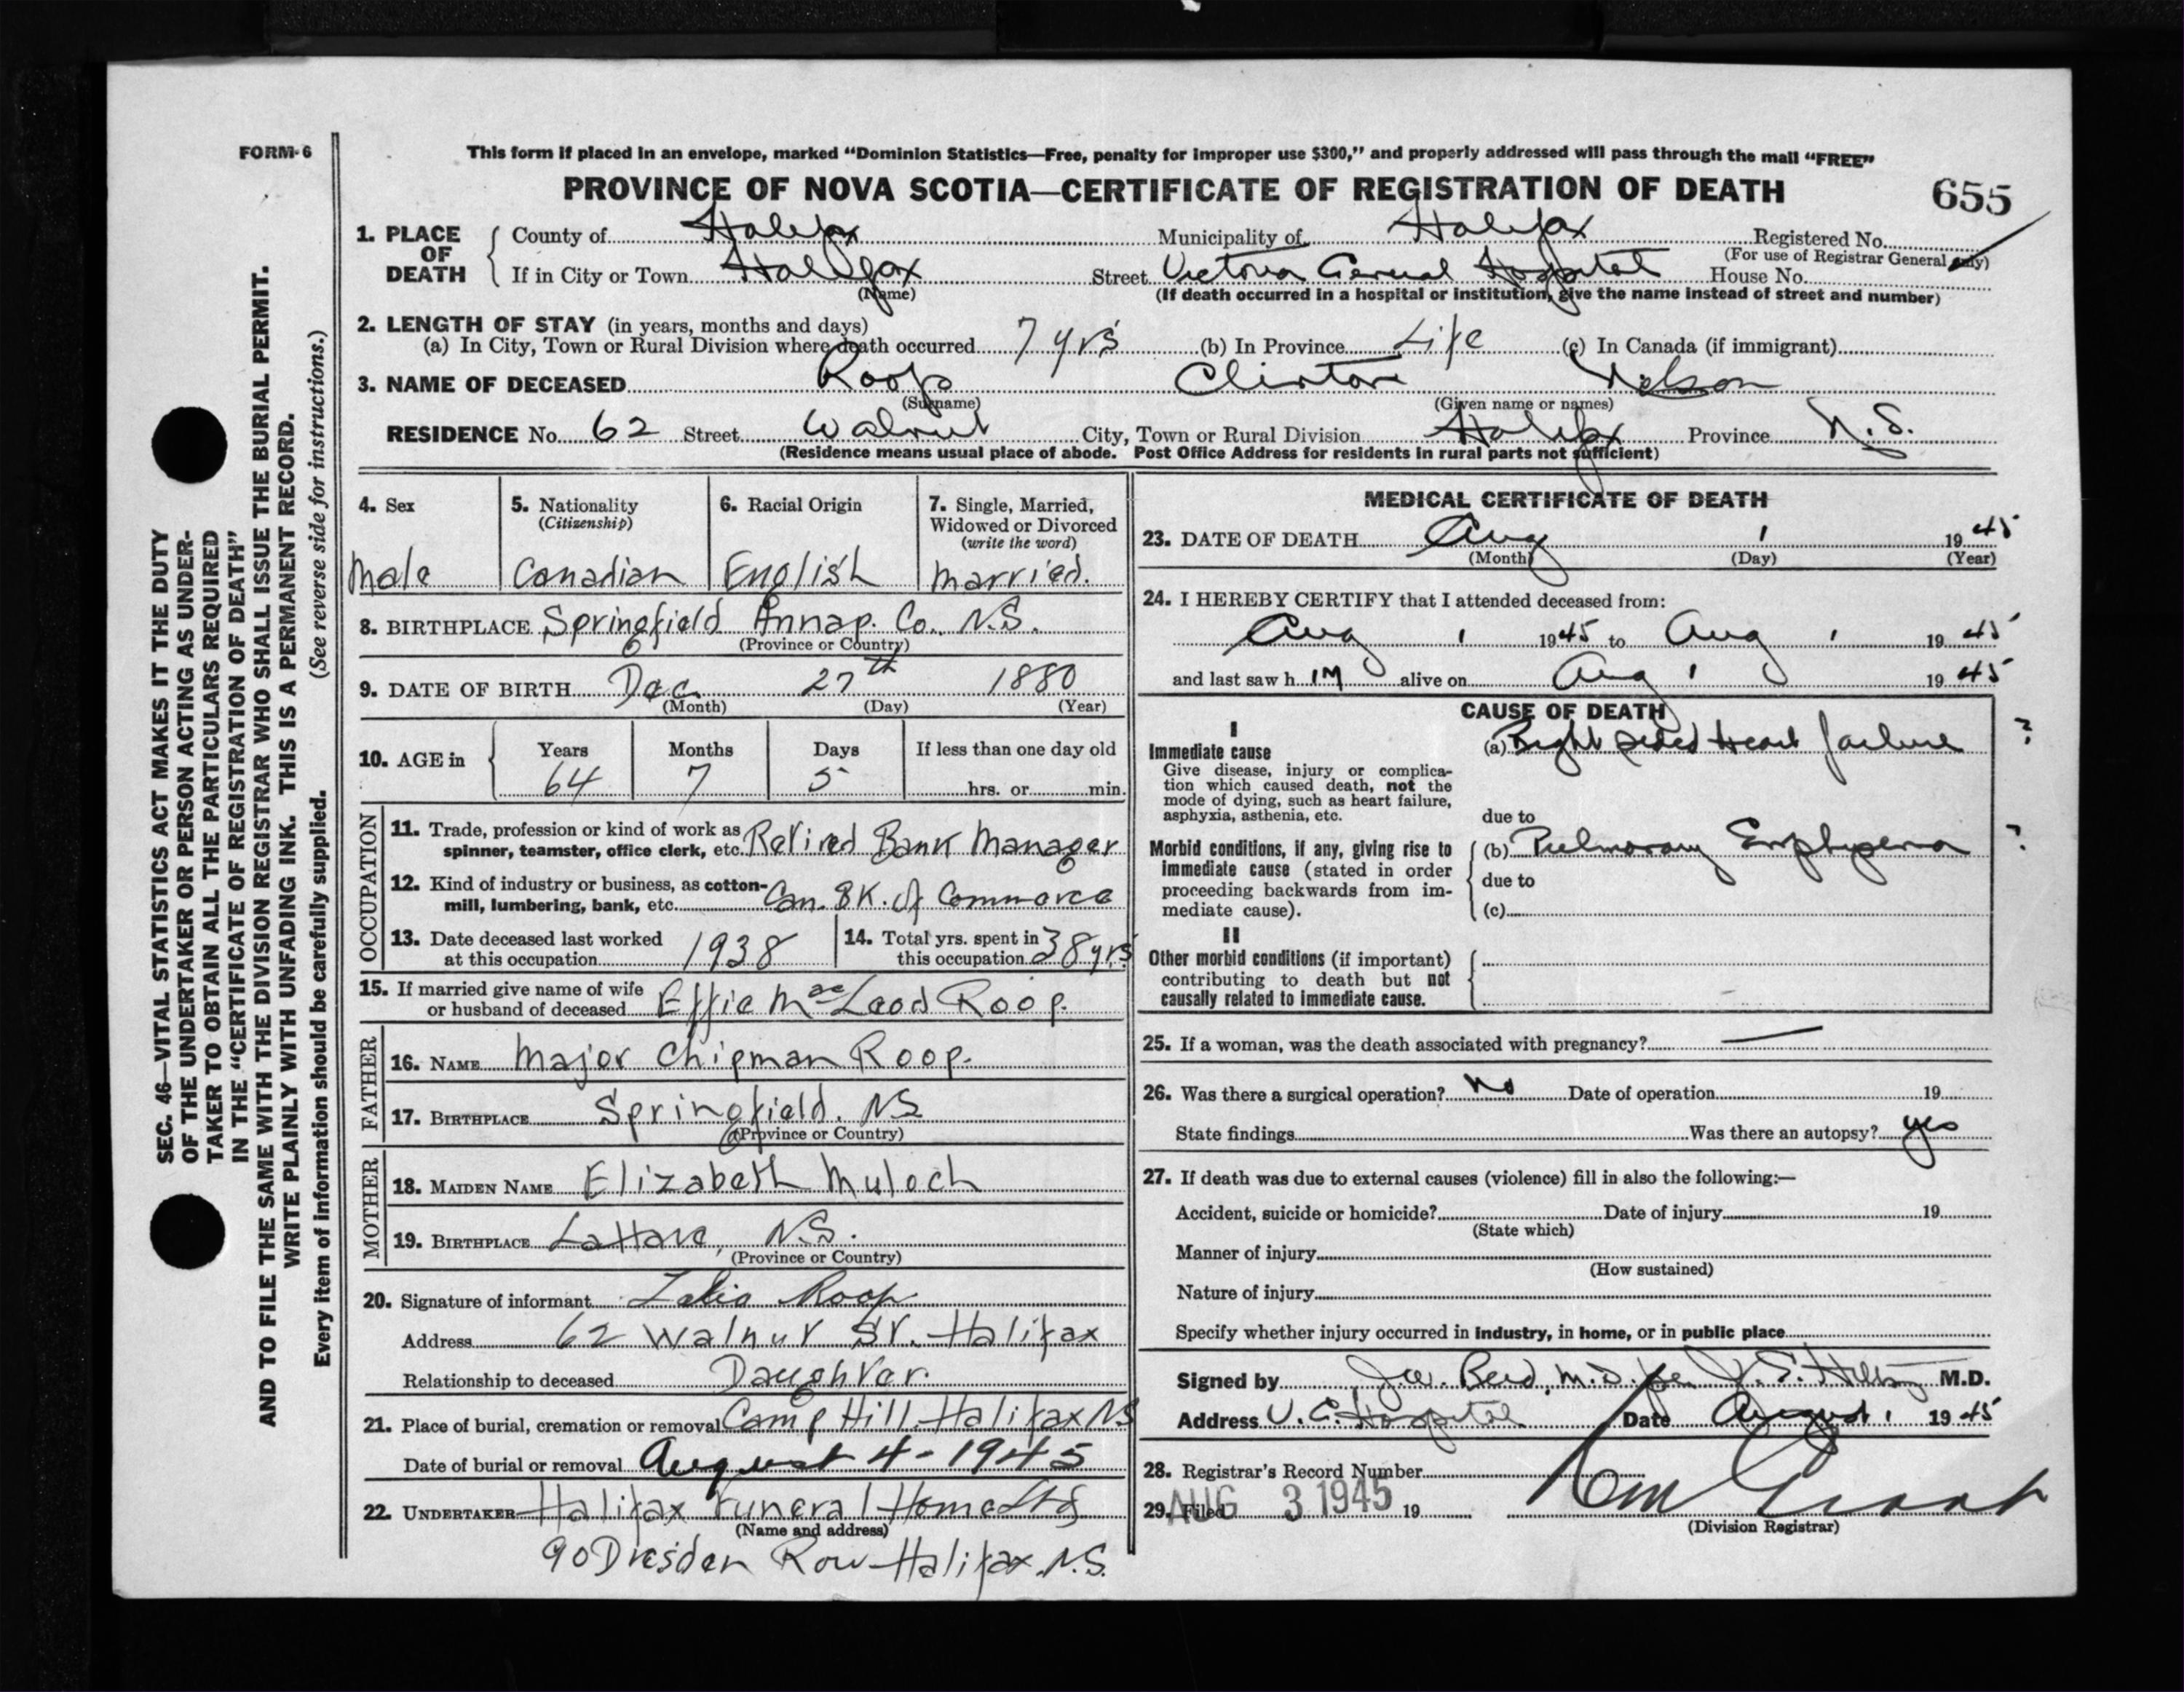 FORM 6
This form if placed in an envelope, marked “Dominion Statistics—Free, penalty for improper use $300,” and properly addressed will pass through the mail “FREE”
PROVINCE OF NOVA SCOTIA—CERTIFICATE OF REGISTRATION OF DEATH
655
1. PLACE OF DEATH
County of Halifax Municipality of Halifax Registered No.
(For use of Registrar General only)
If in City or Town Halifax Street Victoria General Hospital House No.
(Name) (If death occurred in a hospital or institution, give the name instead of street and number)
2. LENGTH OF STAY (in years, months and days)
(a) In City, Town or Rural Division where death occurred 7 yrs (b) In Province Life (c) In Canada (if immigrant)
3. NAME OF DECEASED Roop Clinton Nelson
(Surname) (Given name or names)
RESIDENCE No. 62 Street Walnut City, Town or Rural Division Halifax Province N.S.
(Residence means usual place of abode. Post Office Address for residents in rural parts not sufficient)
4. Sex
Male
5. Nationality
(Citizenship)
Canadian
6. Racial Origin
English
7. Single, Married,
Widowed or Divorced
(write the word)
Married.
8. BIRTHPLACE Springfield Annap. Co. N.S.
(Province or Country)
9. DATE OF BIRTH Dec. 27th 1880
(Month) (Day) (Year)
10. AGE in Years Months Days If less than one day old
64 7 5 hrs. or min.
OCCUPATION
11. Trade, profession or kind of work as
spinner, teamster, office clerk, etc. Retired Bank Manager
12. Kind of industry or business, as cotton-
mill, lumbering, bank, etc. Can. BK. of Commerce
13. Date deceased last worked
at this occupation 1938
14. Total yrs. spent in
this occupation 38 yrs
15. If married give name of wife
or husband of deceased Effie MacLeod Roop.
FATHER
16. NAME Major Chipman Roop.
17. BIRTHPLACE Springfield. NS
(Province or Country)
MOTHER
18. MAIDEN NAME Elizabeth Muloch
19. BIRTHPLACE LaHave, N.S.
(Province or Country)
20. Signature of informant Roop
Address 62 Walnut St. Halifax
Relationship to deceased Daughter.
21. Place of burial, cremation or removal Camp Hill Halifax NS
Date of burial or removal August 4-1945
22. UNDERTAKER Halifax Funeral Home Ltd
(Name and address)
90 Dresden Row Halifax. N.S.
MEDICAL CERTIFICATE OF DEATH
23. DATE OF DEATH Aug 1 1945
(Month) (Day) (Year)
24. I HEREBY CERTIFY that I attended deceased from:
Aug 1 1945 to Aug 1 1945
and last saw h im alive on Aug 1 1945
CAUSE OF DEATH
I
Immediate cause
Give disease, injury or complica-
tion which caused death, not the
mode of dying, such as heart failure,
asphyxia, asthenia, etc.
(a) Right sided Heart failure ?
due to
Morbid conditions, if any, giving rise to
immediate cause (stated in order
proceeding backwards from im-
mediate cause).
(b) Pulmonary Emphysema ?
due to
(c)
II
Other morbid conditions (if important)
contributing to death but not
causally related to immediate cause.
25. If a woman, was the death associated with pregnancy? —
26. Was there a surgical operation? No Date of operation 19
State findings Was there an autopsy? yes
27. If death was due to external causes (violence) fill in also the following:—
Accident, suicide or homicide? Date of injury 19
(State which)
Manner of injury
(How sustained)
Nature of injury
Specify whether injury occurred in industry, in home, or in public place
Signed by M.D. per M.D.
Address V. G. Hospital Date August 1 1945
28. Registrar's Record Number
29. Filed AUG 3 1945 19
(Division Registrar)
SEC. 46—VITAL STATISTICS ACT MAKES IT THE DUTY
OF THE UNDERTAKER OR PERSON ACTING AS UNDER-
TAKER TO OBTAIN ALL THE PARTICULARS REQUIRED
IN THE “CERTIFICATE OF REGISTRATION OF DEATH”
AND TO FILE THE SAME WITH THE DIVISION REGISTRAR WHO SHALL ISSUE THE BURIAL PERMIT.
WRITE PLAINLY WITH UNFADING INK. THIS IS A PERMANENT RECORD.
Every item of information should be carefully supplied. (See reverse side for instructions.)